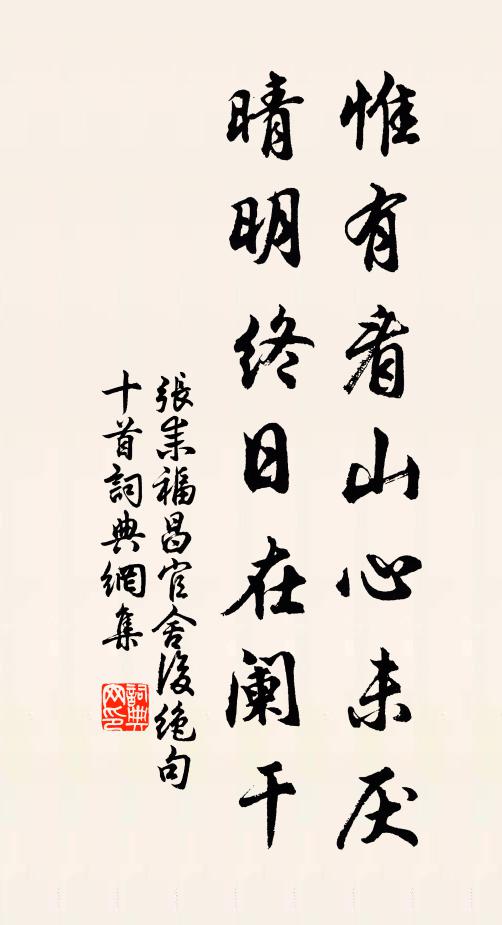 惟有看山心未厌
晴明终日在阑干
張耒福昌官舍後絶句
十首詞典網集
詞典网印